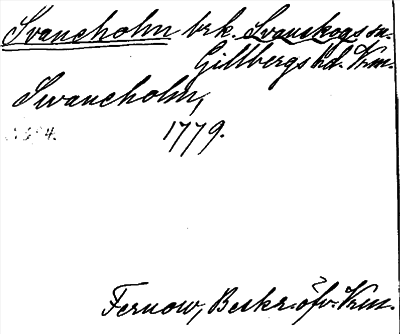 Svaneholm brk. Svanskogs sn.
Gillbergs hd. Vrm.
Swaneholm,
1779.
Fernow, Beskr. öfv. Vrm.